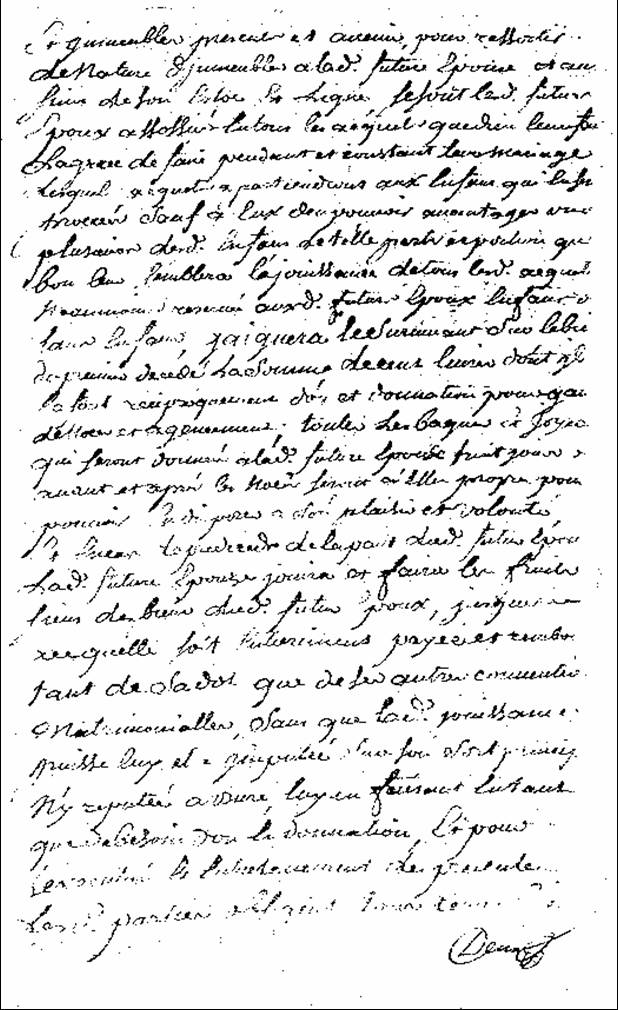 Et jmmeubles presens et avenir, pour ressortir
de Nature djmmeubles a lad. future Epouse et au
siens de son Estoc et Ligne se sont lesd. futurs
Epoux assossiés En tous les acquets que dieu leur fera
La grace de faire pendant et constant leur mariage
Lesquels acquets apartiendront aux Enfans qui En
sauf à Eux de pouvoir avantager un ou
plusieurs desd. Enfans de telle part et portion que
bon leur Semblera La joüissance de tous lesd. acquets
Neanmoins reservée auxd. futurs Epoux Enfans ou
sans Enfans, gaignera le Survivant Sur les biens
du premier decedé La Somme de cens Livres dont ils
se font reciproquement don et donnation pour gain
de Noces et agencement. toutes Les bagues et Joyaux
qui seront donnés a lad. future Epouse tant jour
avant et aprés les Noces seront à Elle propres pour
pouvoir En disposer a Son plaisir et volonté
Et En cas de predecedé de la part dud. futur Epoux
Lad. future Epouze jouira et faira les fruits
siens des biens dud. futur Epoux, jusques a
ce quelle soit Entierement payée et rembo
tant de Sa dot que de Ses autres conventio
Matrimonialles, Sans que lad. jouissance
puisse luy etre jmputée Sur Son Sort princip
N'y reputée a usure, luy en faisant En tant
que de besoin don et donnation, Et pour
l'execution et Entretenement des presentes
Lesd. parties obligent